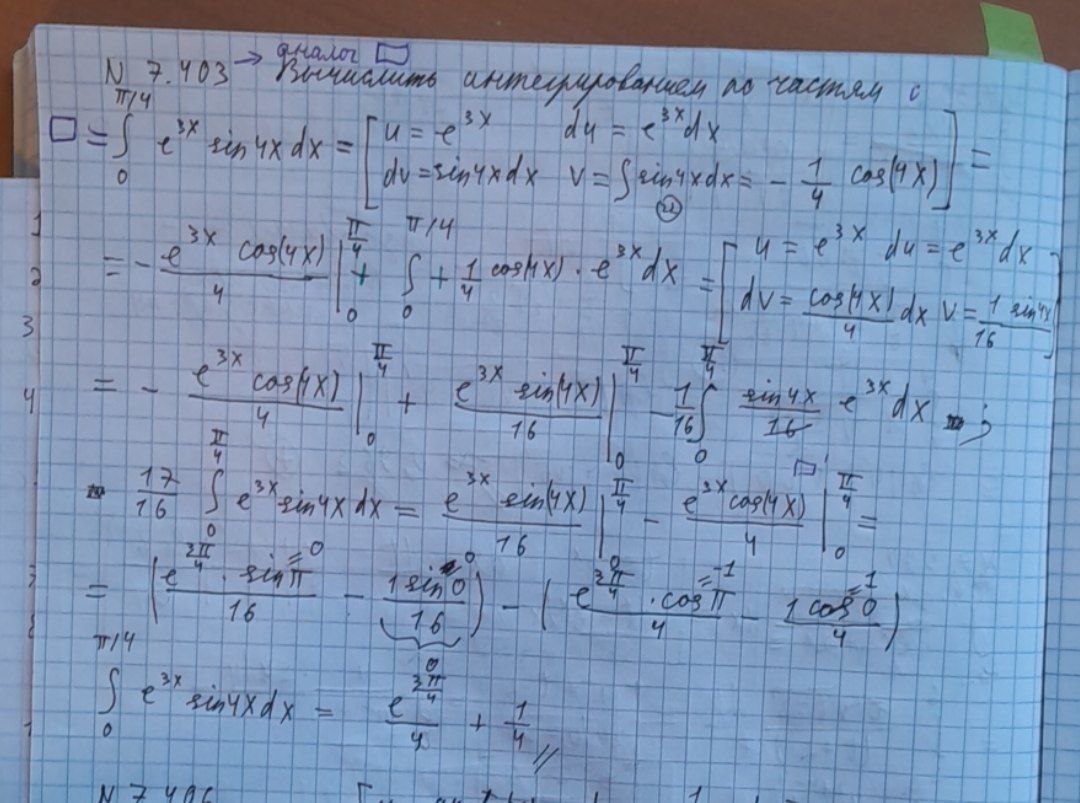 → аналог □
N 7.403 Вычислить интегрированием по частям
□ = ∫₀^{π/4} e^{3x} sin4x dx = [u = e^{3x} du = e^{3x}dx
dv = sin4x dx v = ∫sin4x dx = - 1/4 cos(4x)] =
= - e^{3x} cos(4x)/4 |₀^{π/4} + ∫₀^{π/4} + 1/4 cos(4x) · e^{3x}dx = [u = e^{3x} du = e^{3x}dx
dv = cos(4x)/4 dx v = 1 sin4x/16]
= - e^{3x} cos(4x)/4 |₀^{π/4} + e^{3x} sin(4x)/16 |₀^{π/4} - 1/16 ∫₀^{π/4} sin4x/16 e^{3x}dx ;
17/16 ∫₀^{π/4} e^{3x} sin4x dx = e^{3x} sin(4x)/16 |₀^{π/4} - e^{3x} cos(4x)/4 |₀^{π/4} =
= (e^{3π/4} · sin π^{=0}/16 - 1 sin 0^{=0}/16) - (e^{3π/4} · cos π^{=-1}/4 - 1 cos 0^{=1}/4)
0
∫₀^{π/4} e^{3x} sin4x dx = e^{3π/4}/4 + 1/4 //
1
2
3
4
N 7.406